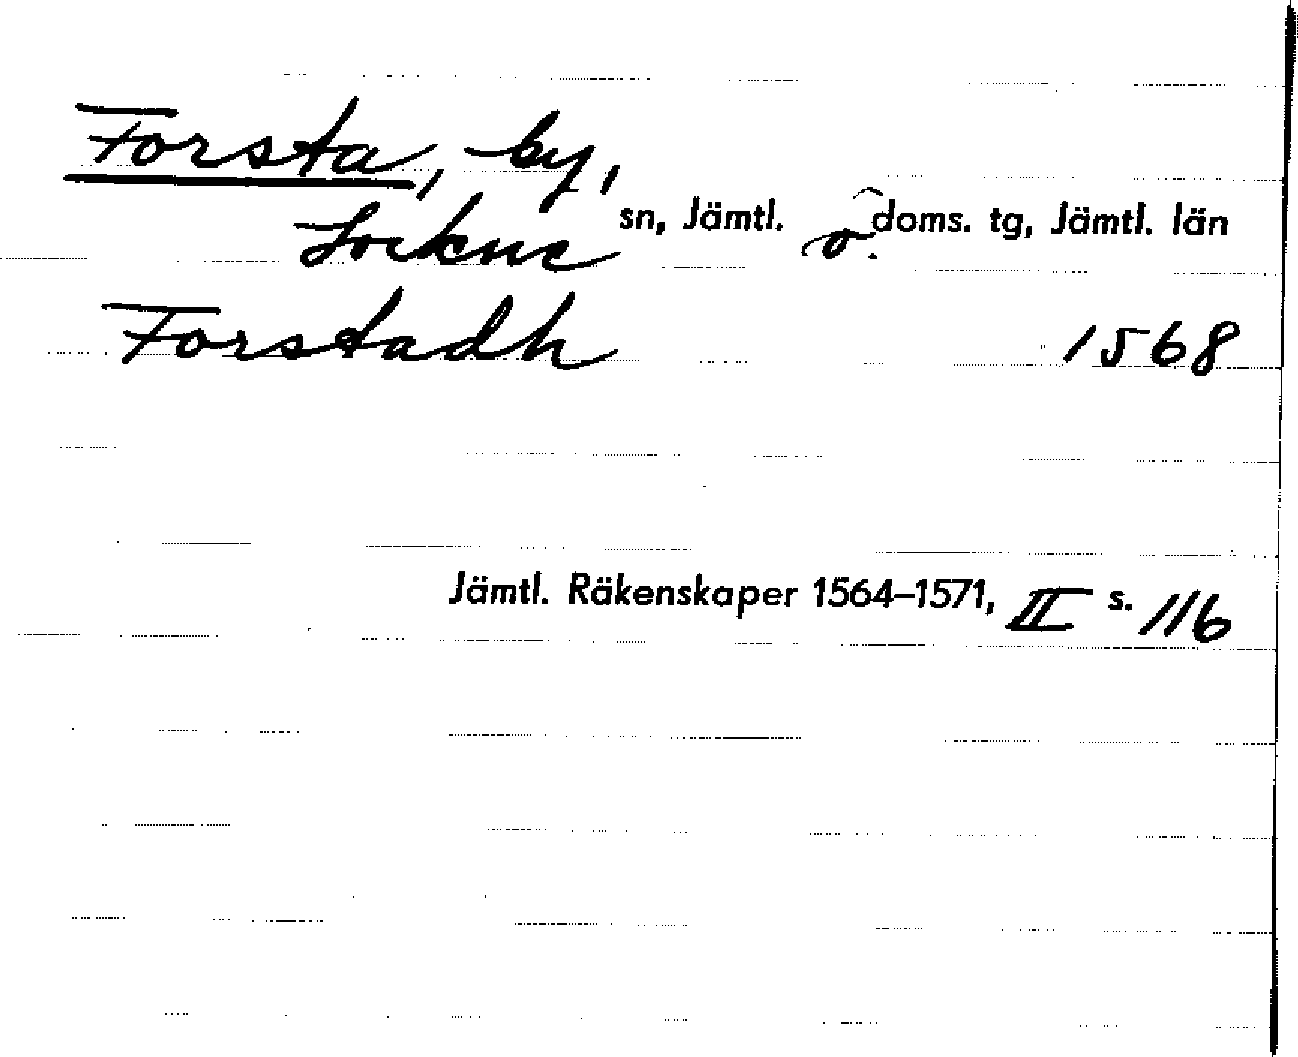 Forsta, by,
Lockne sn, Jämtl. ö. doms. tg, Jämtl. län
Forstadh 1568
Jämtl. Räkenskaper 1564–1571, II s. 116